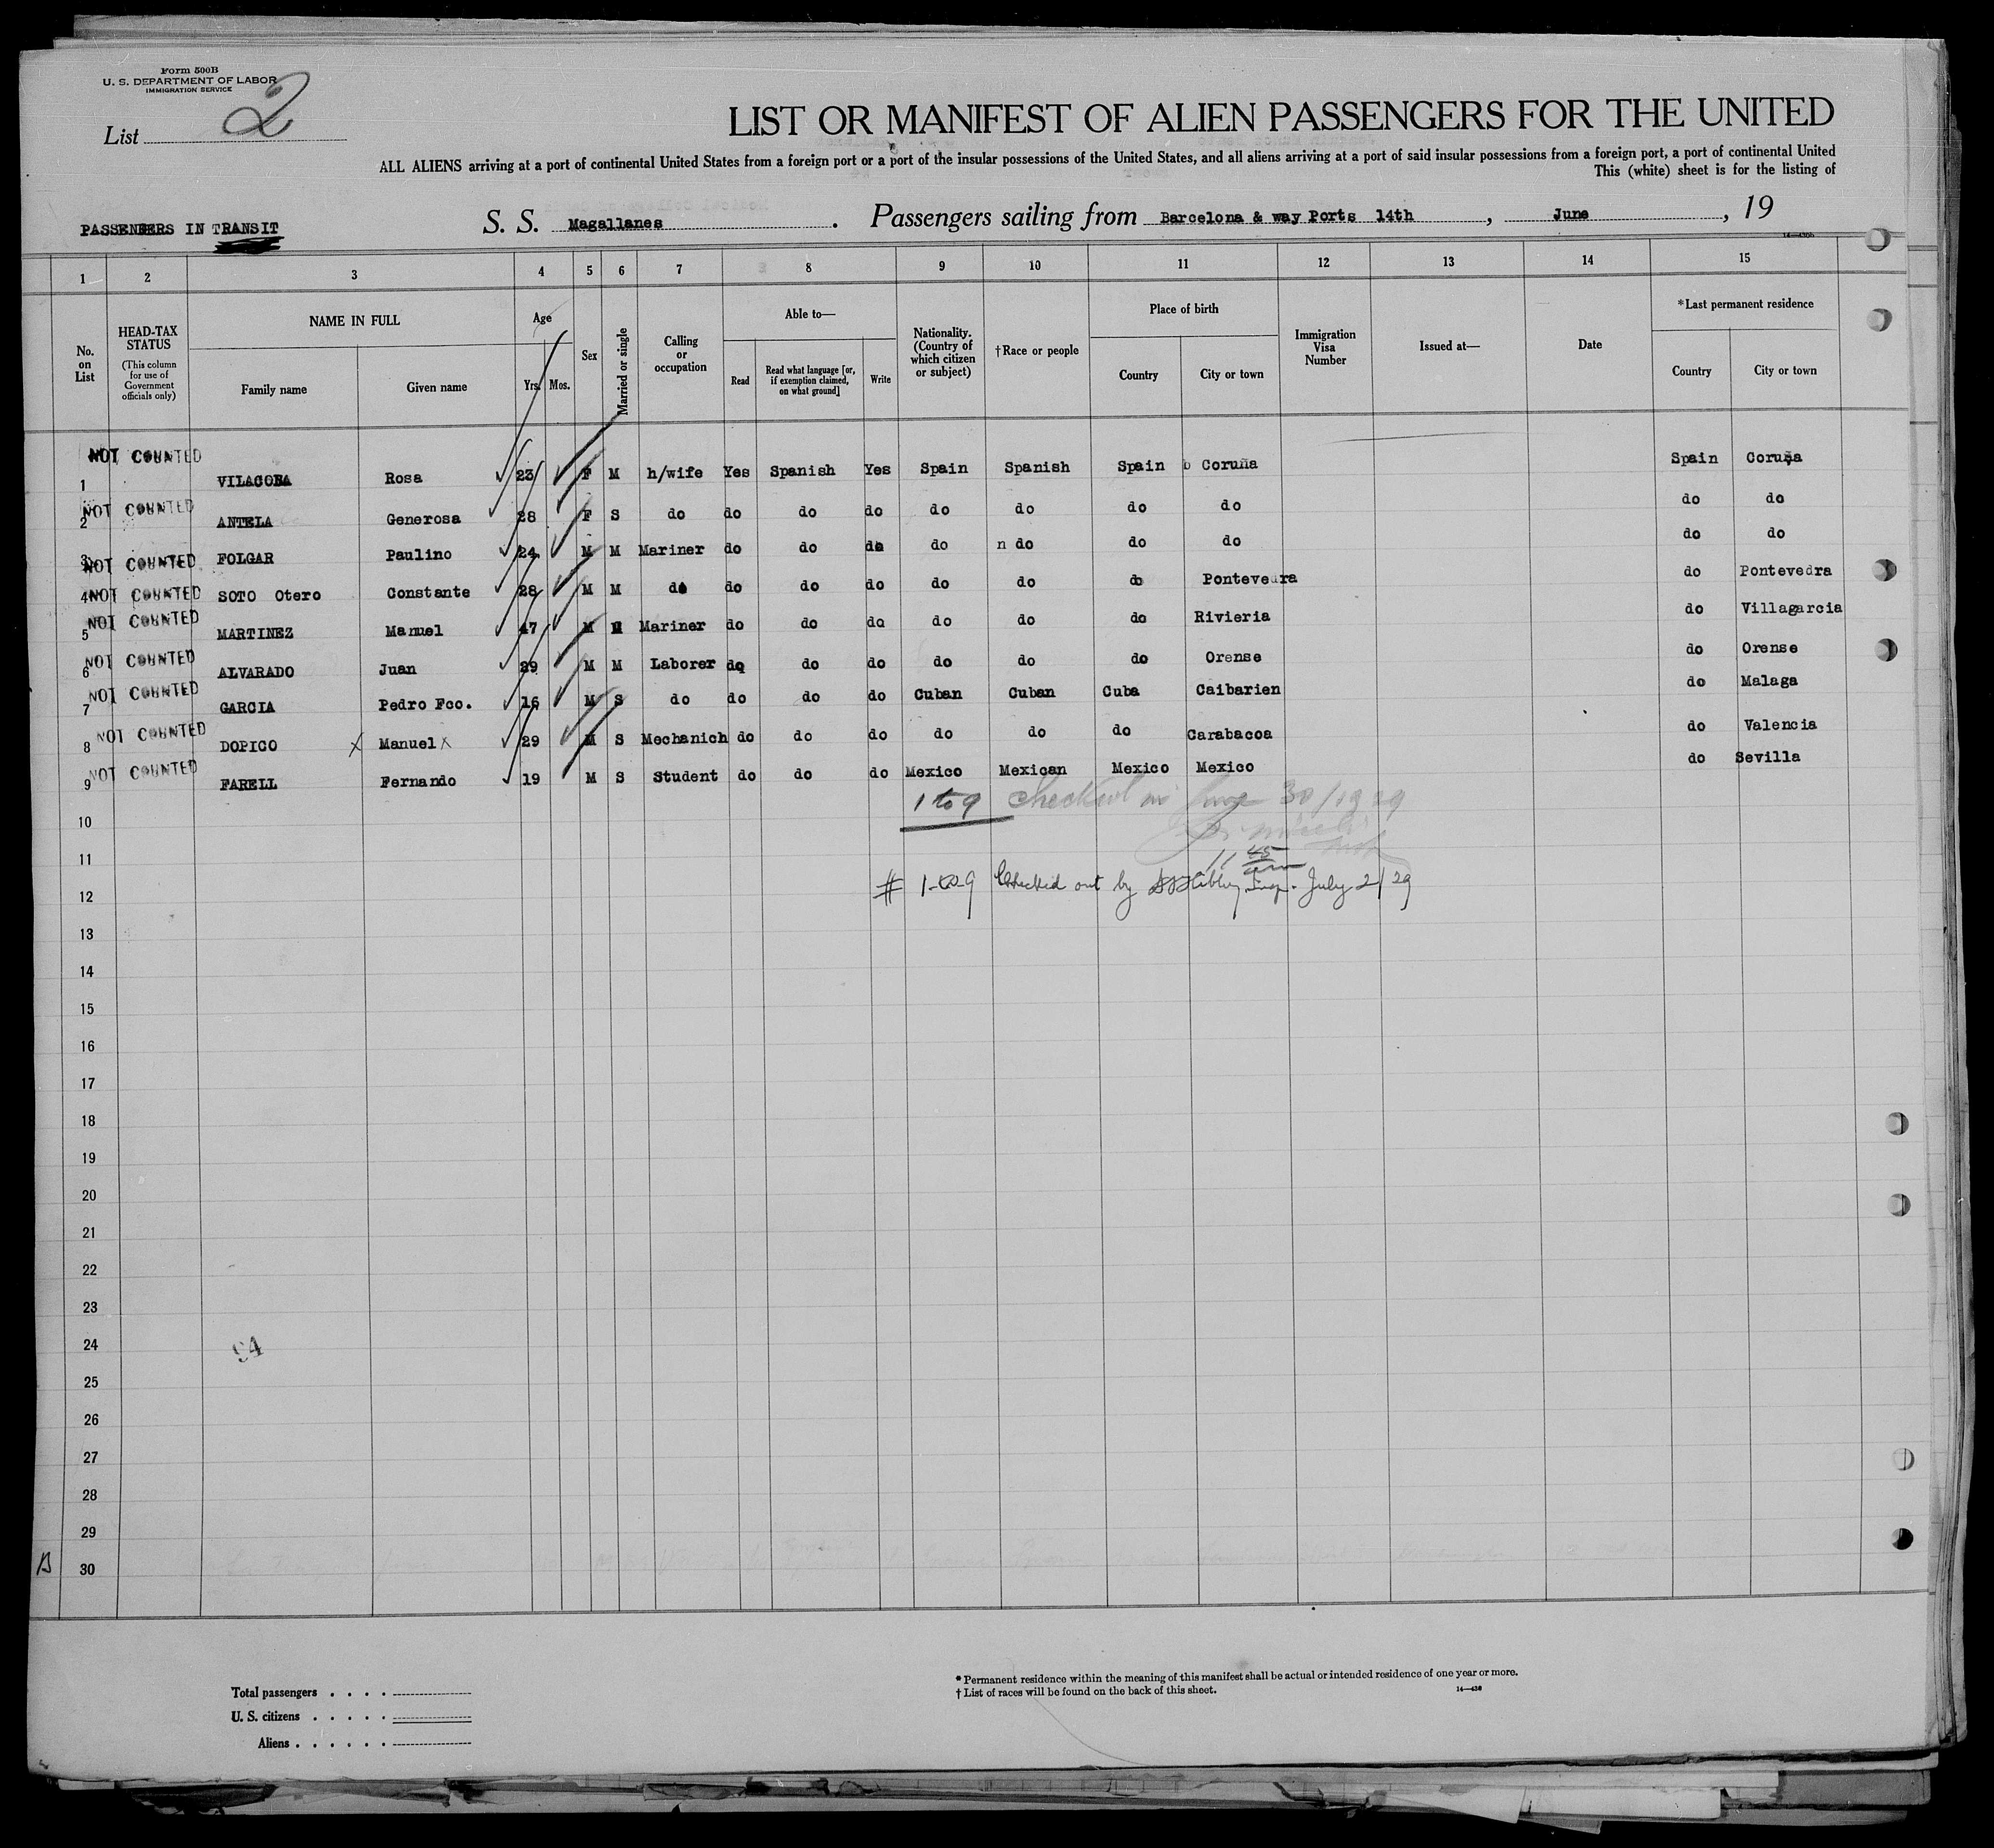 Form 500B
U. S. DEPARTMENT OF LABOR
IMMIGRATION SERVICE
List 2
LIST OR MANIFEST OF ALIEN PASSENGERS FOR THE UNITED
ALL ALIENS arriving at a port of continental United States from a foreign port or a port of the insular possessions of the United States, and all aliens arriving at a port of said insular possessions from a foreign port, a port of continental United
This (white) sheet is for the listing of
PASSENGERS IN TRANSIT
S. S. Magallanes. Passengers sailing from Barcelona & way Ports 14th, June, 19
1 2 3 4 5 6 7 8 9 10 11 12 13 14 15
No. on List
HEAD-TAX STATUS
(This column for use of Government officials only)
NAME IN FULL
Family name Given name
Age
Yrs. Mos.
Sex
Married or single
Calling or occupation
Able to—
Read
Read what language [or, if exemption claimed, on what ground]
Write
Nationality. (Country of which citizen or subject)
†Race or people
Place of birth
Country City or town
Immigration Visa Number
Issued at—
Date
*Last permanent residence
Country City or town
NOT COUNTED
1 VILACOBA Rosa 23 F M h/wife Yes Spanish Yes Spain Spanish Spain Coruña Spain Coruña
NOT COUNTED
2 ANTELA Generosa 28 F S do do do do do do do do do do
NOT COUNTED
3 FOLGAR Paulino 24 M M Mariner do do do do n do do do do do
NOT COUNTED
4 SOTO Otero Constante 28 M M do do do do do do do Pontevedra do Pontevedra
NOT COUNTED
5 MARTINEZ Manuel 47 M M Mariner do do do do do do Rivieria do Villagarcia
NOT COUNTED
6 ALVARADO Juan 29 M M Laborer do do do do do do Orense do Orense
NOT COUNTED
7 GARCIA Pedro Fco. 16 M S do do do do Cuban Cuban Cuba Caibarien do Malaga
NOT COUNTED
8 DOPICO X Manuel X 29 M S Mechanich do do do do do do Carabacoa do Valencia
NOT COUNTED
9 FARELL Fernando 19 M S Student do do do Mexico Mexican Mexico Mexico do Sevilla
1 to 9 Checked in June 30/1929
10
11
11 45 am
# 1-to-9 Checked out by Insp. July 2/29
12
13
14
15
16
17
18
19
20
21
22
23
24
94
25
26
27
28
29
B 30
* Permanent residence within the meaning of this manifest shall be actual or intended residence of one year or more.
† List of races will be found on the back of this sheet.
Total passengers
U. S. citizens
Aliens